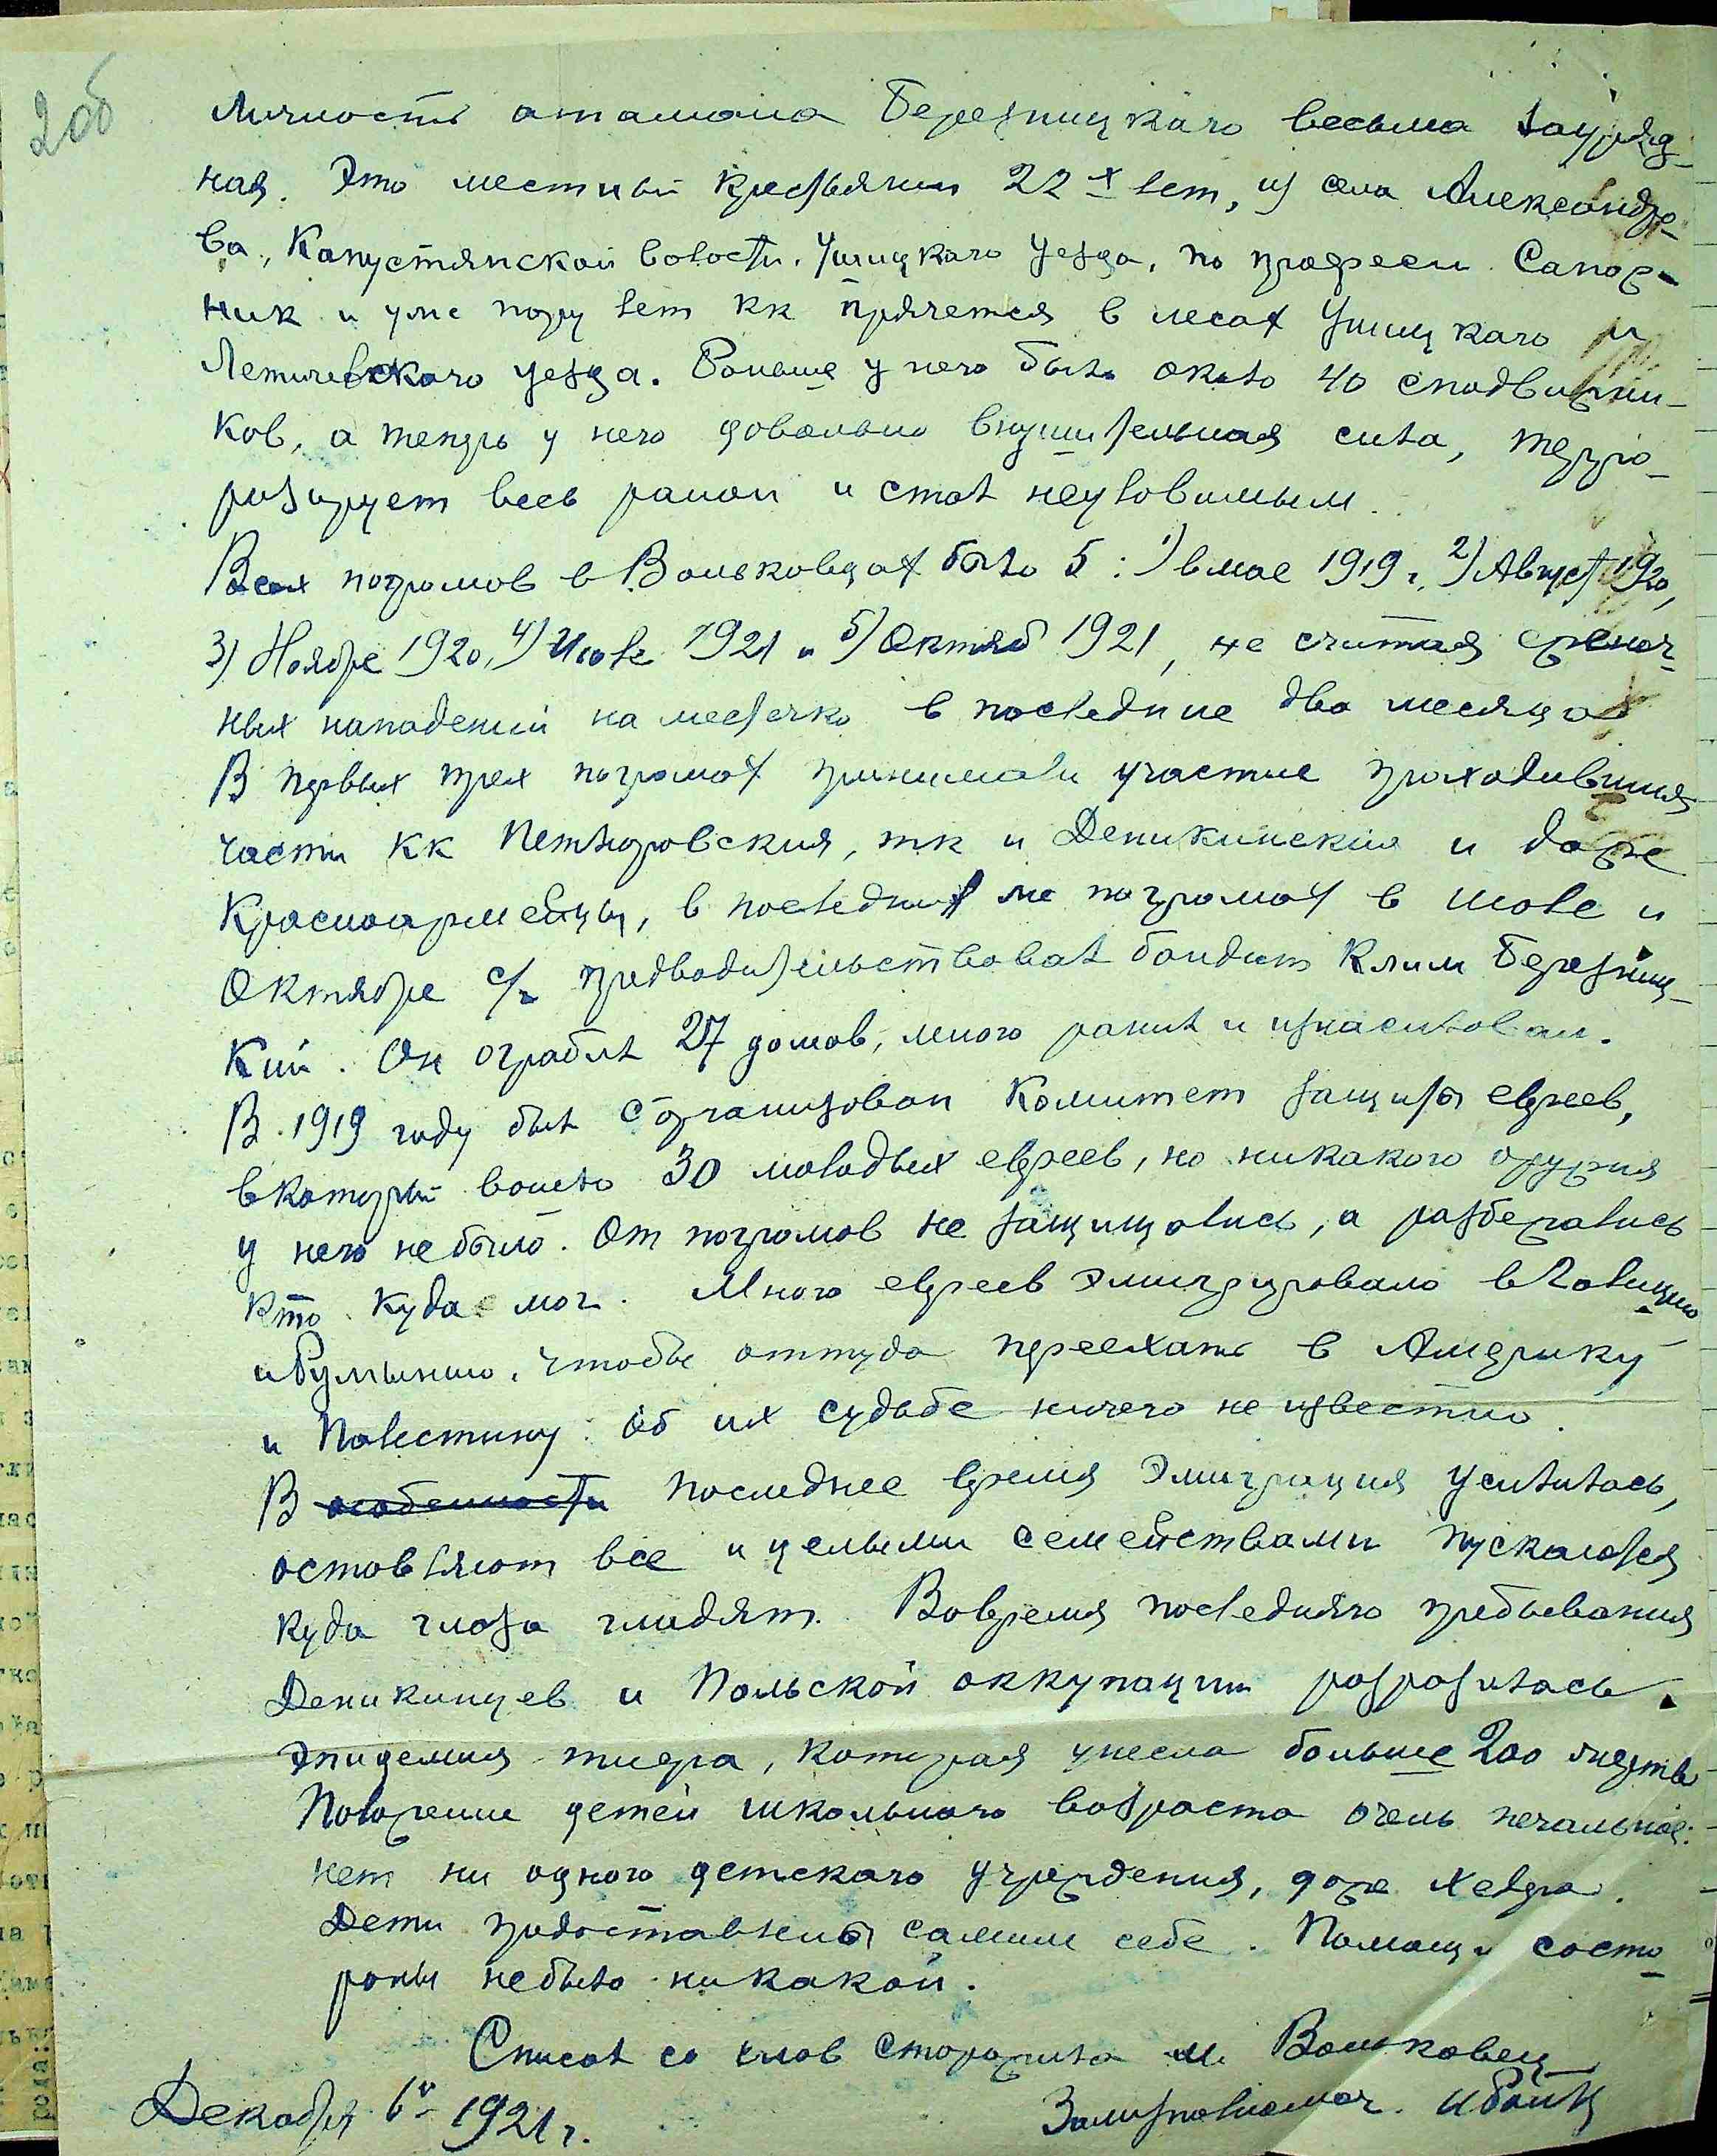 2об
Личность атамана Березницкаго весьма зауряд-
ная. Это местный крестьянин 22х лет, из села Александро-
ва, Капустянской волости, Ушицкаго уезда, по професси Сапож-
ник и уже пару лет кк прячется в лесах Ушицкаго и
Летичевскаго уезда. Раньше у него было около 40 сподвижни-
ков, а теперь у него довольно внушительная сила, терро-
ризирует весь район и стал неуловимым.
Всех погромов в Вольковцах было 5: 1) в мае 1919 г., 2) Август 1920,
3) Ноябре 1920, 4) Июле 1921 и 5) Октяб 1921, не считая еженоч-
ных нападений на местечко в последние два месяца
В первых трех погромах принимали участие проходившия
части кк Петлюровския, тк и Деникинския и даже
Красноармейцы, в последних же погромах в июле и
Октябре с/г предводительствовал бандит Клим Березниц-
кий. Он ограбил 27 домов, много ранил и изнасиловал.
В 1919 году был сорганизован Комитет защиты евреев,
в который вошло 30 молодых евреев, но никакого оружия
у него не было. От погромов не защищались, а разбегались
кто куда мог. Много евреев эмигрировало в Галицию
и Румынию, чтобы оттуда переехать в Америку
и Палестину. Об их судьбе ничего не известно.
В особенности последнее время эмиграция усилилась,
оставляют все и целыми семействами пускаются
куда глаза глядят. Вовремя последняго пребывания
Деникинцев и Польской оккупации разразилась
эпидемия тифа, которая унесла больше 200 жертв
Положение детей школьнаго возраста очень печальное:
нет ни одного детскаго учреждения, даже хедера.
Дети предоставлены самим себе. Помощи со сто-
роны не было никакой.
Списал со слов сторожила м. Вольковец
Декабря 6го 1921 г.